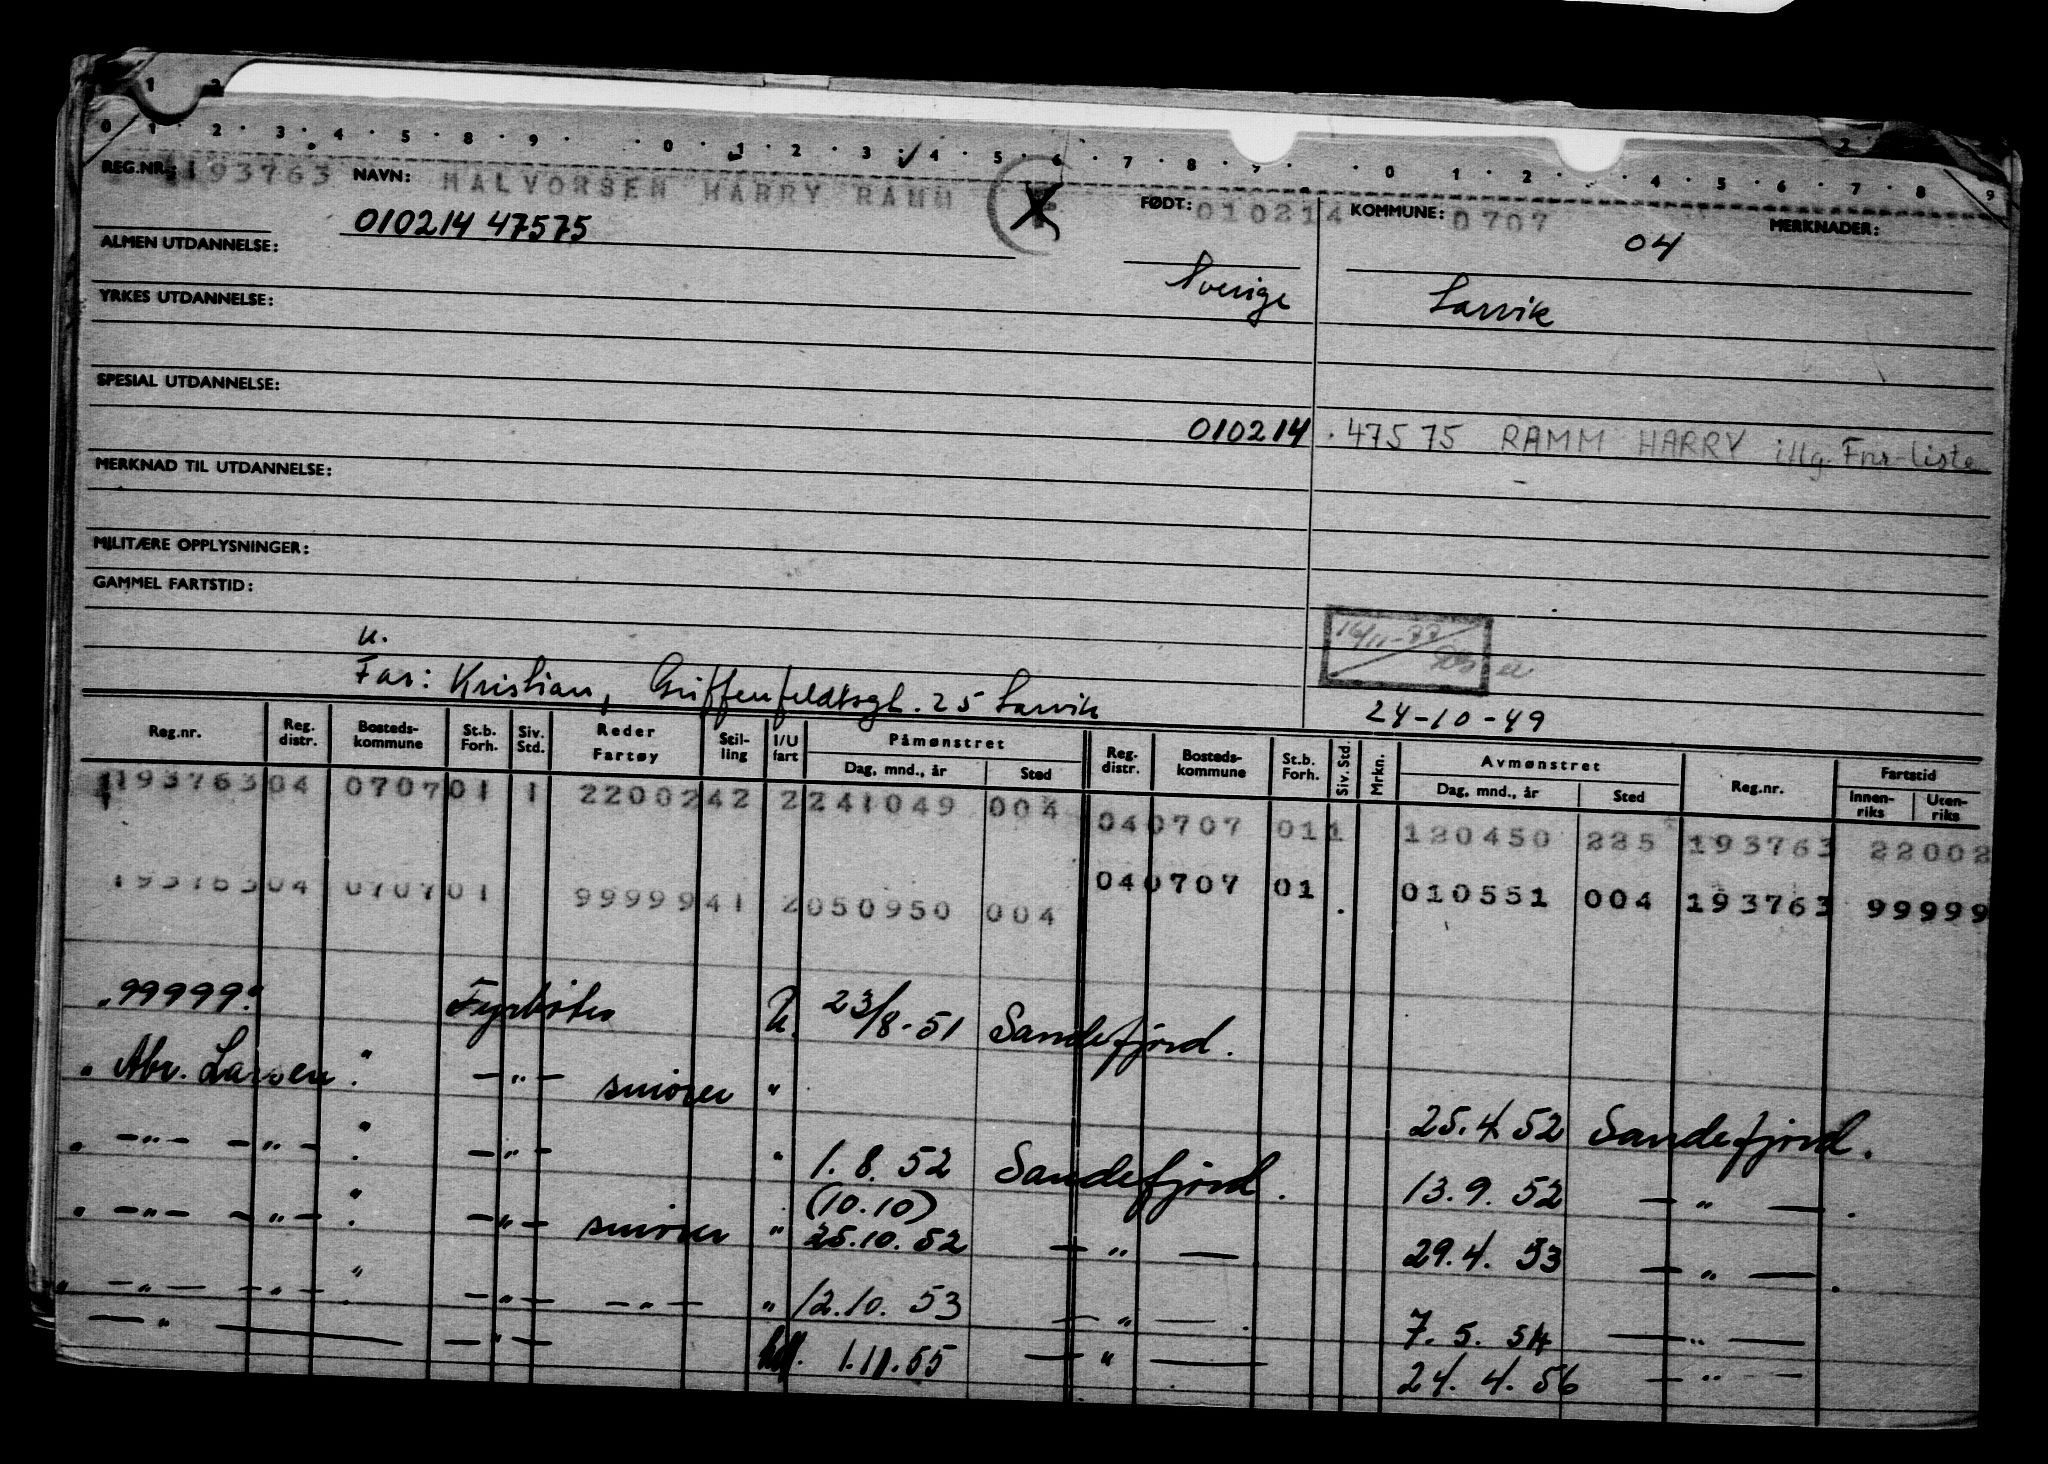 1 2 2
0 · 1 · 2 · 3 · 4 · 5 · 8 · 9 · · 0 · 1 · 2 · 3 · 4 · 5 · 6 · 7 · 8 · 9 · 0 1 · 2 · · 4 · 5 · 6 · 7 · 8 · 9
REG.NR.: 193763 NAVN: HALVORSEN HARRY RAMM FØDT: 010214 KOMMUNE: 0707 MERKNADER:
010214 47575 04
ALMEN UTDANNELSE: Sverige Larvik
YRKES UTDANNELSE:
SPESIAL UTDANNELSE:
010214 . 47575 RAMM HARRY illg. Fnr-liste
MERKNAD TIL UTDANNELSE:
MILITÆRE OPPLYSNINGER:
GAMMEL FARTSTID:
16/11-77
u.
Far: Kristian, Griffenfeldtsgt. 25 Larvik 24-10-49
Reg.nr. Reg. distr. Bosteds-kommune St.b. Forh. Siv. Std. Reder Fartøy Stil-ling I/U fart Påmønstret Dag, mnd., år Sted Reg. distr. Bosteds-kommune St.b. Forh. Siv. Std. Mrkn. Avmønstret Dag, mnd., år Sted Reg.nr. Fartstid Innen-riks Uten-riks
193763 04 0707 01 1 22002 42 2 241049 004 04 0707 01 1 120450 225 193763 22002
193763 04 0707 01 99999 41 2 050950 004 04 0707 01 . 010551 004 193763 99999
"99999" Fyrbøter U. 23/8-51 Sandefjord.
" Abr. Larsen " — " — smører " 25.4 52 Sandefjord.
" — " — — " — " — " — " 1. 8. 52 Sandefjord. 13. 9. 52 — " — .
(10.10)
" — " — — " — " — " — smører " 25.10. 52 — " — 29. 4. 53 — " — .
" — " — — " — " — " — — " — " 12.10. 53 — " — . 7. 5. 54 — " —
— " — — " — 1.11.55 — " — 24. 4. 56 — " —